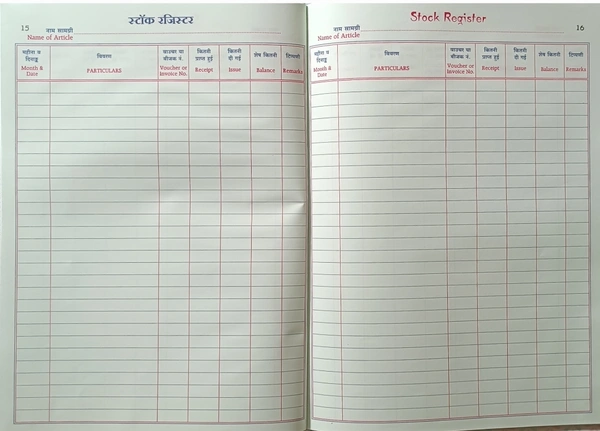 15
स्टॉक रजिस्टर
नाम सामग्री
Name of Article
महीना व दिनाङ्क
Month & Date
विवरण
PARTICULARS
वाउचर या बीजक नं.
Voucher or Invoice No.
कितनी प्राप्त हुई
Receipt
कितनी दी गई
Issue
शेष कितनी
Balance
टिप्पणी
Remarks
Stock Register
16
नाम सामग्री
Name of Article
महीना व दिनाङ्क
Month & Date
विवरण
PARTICULARS
वाउचर या बीजक नं.
Voucher or Invoice No.
कितनी प्राप्त हुई
Receipt
कितनी दी गई
Issue
शेष कितनी
Balance
टिप्पणी
Remarks